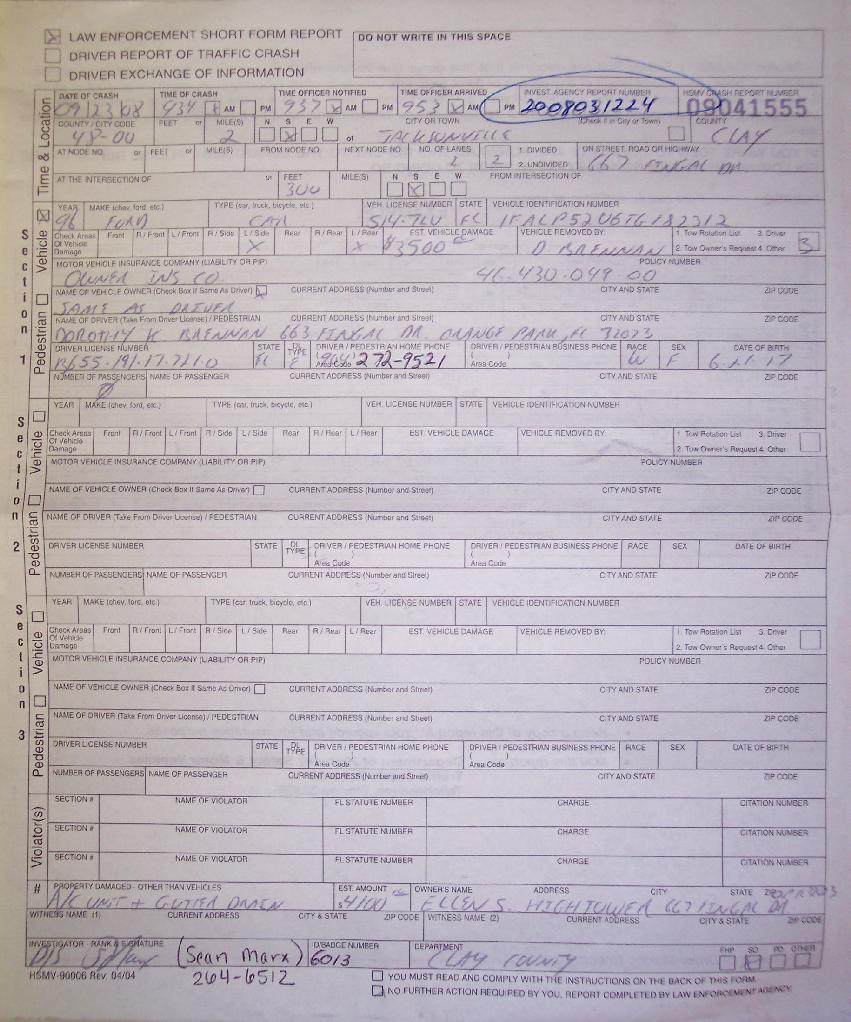 LAW ENFORCEMENT SHORT FORM REPORT DO NOT WRITE IN THIS SPACE
DRIVER REPORT OF TRAFFIC CRASH
DRIVER EXCHANGE OF INFORMATION
Time & Location
DATE OF CRASH TIME OF CRASH TIME OFFICER NOTIFIED TIME OFFICER ARRIVED INVEST. AGENCY REPORT NUMBER HSMV CRASH REPORT NUMBER
09/23/08 934 X AM PM 937 X AM PM 953 X AM PM 2008031224 09041555
COUNTY / CITY CODE FEET or MILE(S) N S E W CITY OR TOWN (Check if in City or Town) COUNTY
48-00 2 X of JACKSONVILLE CLAY
AT NODE NO. or FEET or MILE(S) FROM NODE NO. NEXT NODE NO. NO. OF LANES 1. DIVIDED ON STREET, ROAD OR HIGHWAY
2 2 2. UNDIVIDED 667 FINGAL DR
AT THE INTERSECTION OF or FEET MILE(S) N S E W FROM INTERSECTION OF
300 X
Section 1
Pedestrian Vehicle X
YEAR MAKE (chev, ford, etc.) TYPE (car, truck, bicycle, etc.) VEH. LICENSE NUMBER STATE VEHICLE IDENTIFICATION NUMBER
96 FORD CAR FL
Check Areas Of Vehicle Damage Front R / Front L / Front R / Side L / Side Rear R / Rear L / Rear EST. VEHICLE DAMAGE VEHICLE REMOVED BY: 1. Tow Rotation List 3. Driver
X X $3500 D BRENNAN 2. Tow Owner's Request 4. Other 3
MOTOR VEHICLE INSURANCE COMPANY (LIABILITY OR PIP) POLICY NUMBER
OWNER INS CO 46-430-049-00
NAME OF VEHICLE OWNER (Check Box If Same As Driver) CURRENT ADDRESS (Number and Street) CITY AND STATE ZIP CODE
SAME AS DRIVER
NAME OF DRIVER (Take From Driver License) / PEDESTRIAN CURRENT ADDRESS (Number and Street) CITY AND STATE ZIP CODE
DOROTHY K BRENNAN 663 FINGAL DR. ORANGE PARK, FL 32073
DRIVER LICENSE NUMBER STATE DL TYPE DRIVER / PEDESTRIAN HOME PHONE DRIVER / PEDESTRIAN BUSINESS PHONE RACE SEX DATE OF BIRTH
B655-191-17-721-0 FL E (904) 272-9521 Area Code ( ) Area Code W F 6-21-17
NUMBER OF PASSENGERS NAME OF PASSENGER CURRENT ADDRESS (Number and Street) CITY AND STATE ZIP CODE
0
Section 2
Pedestrian Vehicle
YEAR MAKE (chev, ford, etc.) TYPE (car, truck, bicycle, etc.) VEH. LICENSE NUMBER STATE VEHICLE IDENTIFICATION NUMBER
Check Areas Of Vehicle Damage Front R / Front L / Front R / Side L / Side Rear R / Rear L / Rear EST. VEHICLE DAMAGE VEHICLE REMOVED BY: 1. Tow Rotation List 3. Driver
2. Tow Owner's Request 4. Other
MOTOR VEHICLE INSURANCE COMPANY (LIABILITY OR PIP) POLICY NUMBER
NAME OF VEHICLE OWNER (Check Box If Same As Driver) CURRENT ADDRESS (Number and Street) CITY AND STATE ZIP CODE
NAME OF DRIVER (Take From Driver License) / PEDESTRIAN CURRENT ADDRESS (Number and Street) CITY AND STATE ZIP CODE
DRIVER LICENSE NUMBER STATE DL TYPE DRIVER / PEDESTRIAN HOME PHONE DRIVER / PEDESTRIAN BUSINESS PHONE RACE SEX DATE OF BIRTH
( ) Area Code ( ) Area Code
NUMBER OF PASSENGERS NAME OF PASSENGER CURRENT ADDRESS (Number and Street) CITY AND STATE ZIP CODE
Section 3
Pedestrian Vehicle
YEAR MAKE (chev, ford, etc.) TYPE (car, truck, bicycle, etc.) VEH. LICENSE NUMBER STATE VEHICLE IDENTIFICATION NUMBER
Check Areas Of Vehicle Damage Front R / Front L / Front R / Side L / Side Rear R / Rear L / Rear EST. VEHICLE DAMAGE VEHICLE REMOVED BY: 1. Tow Rotation List 3. Driver
2. Tow Owner's Request 4. Other
MOTOR VEHICLE INSURANCE COMPANY (LIABILITY OR PIP) POLICY NUMBER
NAME OF VEHICLE OWNER (Check Box If Same As Driver) CURRENT ADDRESS (Number and Street) CITY AND STATE ZIP CODE
NAME OF DRIVER (Take From Driver License) / PEDESTRIAN CURRENT ADDRESS (Number and Street) CITY AND STATE ZIP CODE
DRIVER LICENSE NUMBER STATE DL TYPE DRIVER / PEDESTRIAN HOME PHONE DRIVER / PEDESTRIAN BUSINESS PHONE RACE SEX DATE OF BIRTH
( ) Area Code ( ) Area Code
NUMBER OF PASSENGERS NAME OF PASSENGER CURRENT ADDRESS (Number and Street) CITY AND STATE ZIP CODE
Violator(s)
SECTION # NAME OF VIOLATOR FL STATUTE NUMBER CHARGE CITATION NUMBER
SECTION # NAME OF VIOLATOR FL STATUTE NUMBER CHARGE CITATION NUMBER
SECTION # NAME OF VIOLATOR FL STATUTE NUMBER CHARGE CITATION NUMBER
# PROPERTY DAMAGED - OTHER THAN VEHICLES EST. AMOUNT OWNER'S NAME ADDRESS CITY STATE ZIP
A/C UNIT + GUTTER DRAIN $4100 ELLEN S. HIGHTOWER 667 FINGAL DR
WITNESS NAME (1) CURRENT ADDRESS CITY & STATE ZIP CODE WITNESS NAME (2) CURRENT ADDRESS CITY & STATE ZIP CODE
INVESTIGATOR RANK & SIGNATURE ID/BADGE NUMBER DEPARTMENT FHP SO PD OTHER
D/S (Sean Marx) 6013 CLAY COUNTY X
HSMV-90006 Rev. 04/04 264-6512 YOU MUST READ AND COMPLY WITH THE INSTRUCTIONS ON THE BACK OF THIS FORM.
NO FURTHER ACTION REQUIRED BY YOU, REPORT COMPLETED BY LAW ENFORCEMENT AGENCY.